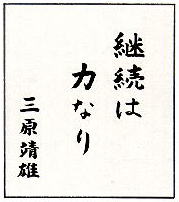 継続は
力なり
三原靖雄